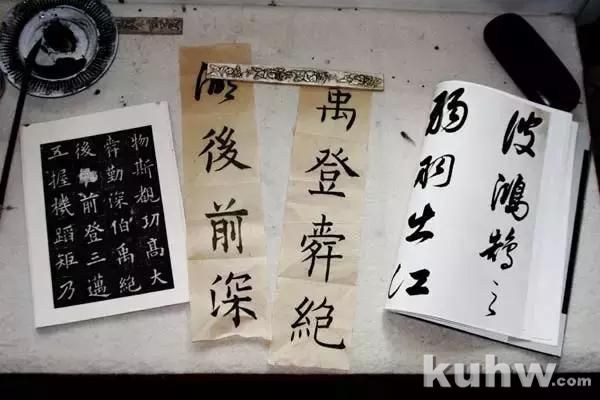 物斯覩功高大
舜勤深伯禹絕
後前登三邁
五握機蹈矩乃
禹登舜絕
後前深
波鴻鵠之
弱羽出江
kuhw.com